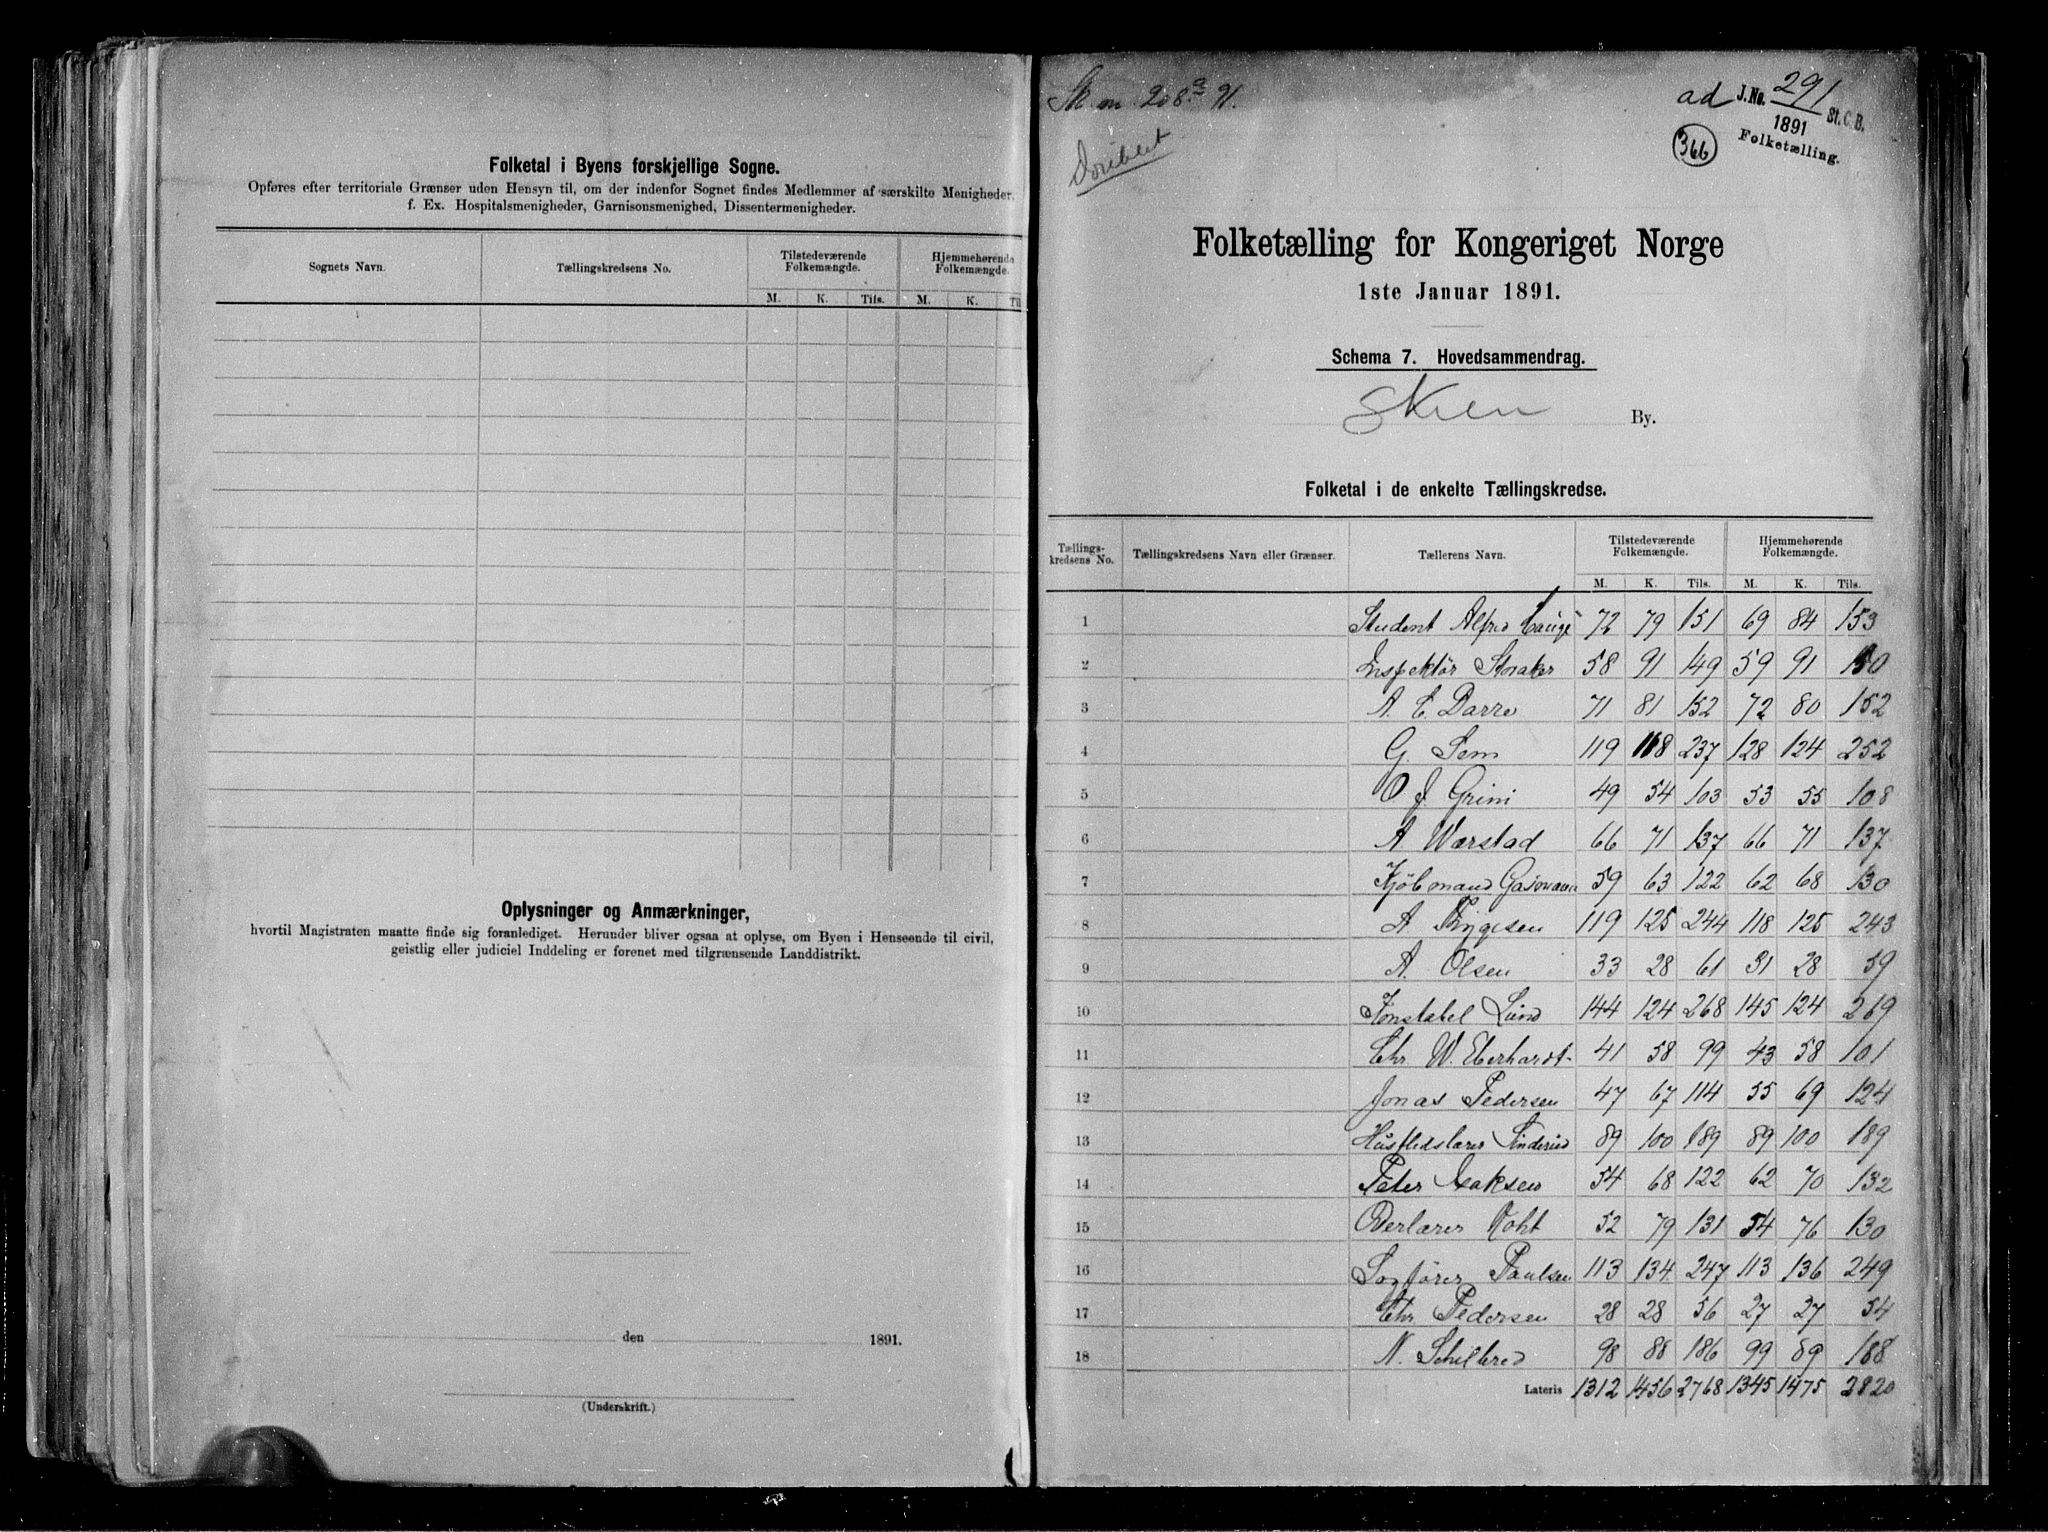 Folketal i Byens forskjellige Sogne.
Opføres efter territoriale Grænser uden Hensyn til, om der indenfor Sognet findes Medlemmer af særskilte Menigheder,
f. Ex. Hospitalsmenigheder, Garnisonsmenighed, Dissentermenigheder.
Sognets Navn. Tællingskredsens No. Tilstedeværende Folkemængde. Hjemmehørende Folkemængde.
M. K. Tils. M. K. Til
Oplysninger og Anmærkninger,
hvortil Magistraten maatte finde sig foranlediget. Herunder bliver ogsaa at oplyse, om Byen i Henseende til civil,
geistlig eller judiciel Inddeling er forenet med tilgrænsende Landdistrikt.
den 1891.
(Underskrift.)
ad J.No. 291
1891 St.C.B.
Folketælling.
366
Folketælling for Kongeriget Norge
1ste Januar 1891.
Schema 7. Hovedsammendrag.
Skien By.
Folketal i de enkelte Tællingskredse.
Tællingskredsens No. Tællingskredsens Navn eller Grænser. Tællerens Navn. Tilstedeværende Folkemængde. Hjemmehørende Folkemængde.
M. K. Tils. M. K. Tils.
1 Student Alfred 72 79 151 69 84 153
2 Inspektör 58 91 149 59 91 150
3 A. C. Darre 71 81 152 72 80 152
4 G. Sem 119 118 237 128 124 252
5 O J. Grini 49 54 103 53 55 108
6 A Wærstad 66 71 137 66 71 137
7 Kjöbmand 59 63 122 62 68 130
8 A 119 125 244 118 125 243
9 A. Olsen 33 28 61 31 28 59
10 Konstabel Lund 144 124 268 145 124 269
11 Chr. W. Eberhardt 41 58 99 43 58 101
12 Jonas Pedersen 47 67 114 55 69 124
13 89 100 189 89 100 189
14 Peter Isaksen 54 68 122 62 70 132
15 Overlærer Koht 52 79 131 54 76 130
16 Sagförer Paulsen 113 134 247 113 136 249
17 Chr Pedersen 28 28 56 27 27 54
18 N. Schilbred 98 88 186 99 89 188
Lateris 1312 1456 2768 1345 1475 2820